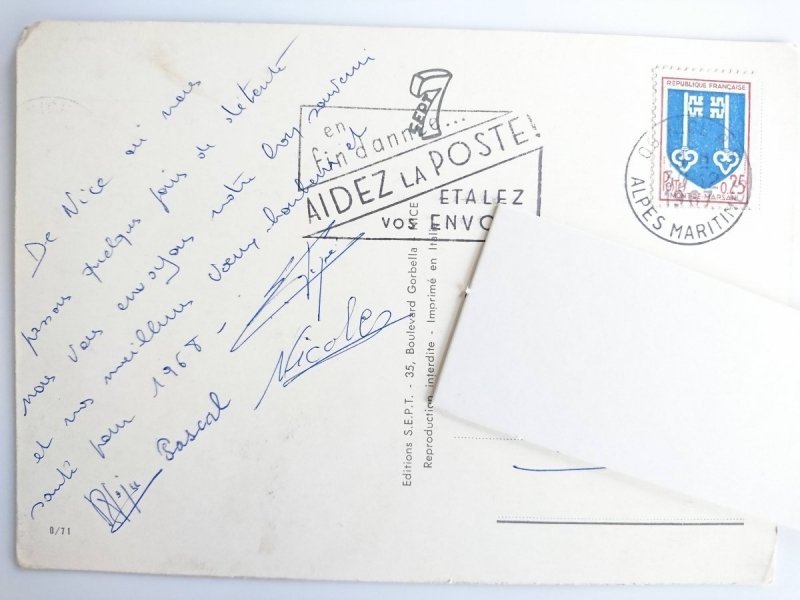 De Nice où nous
passons quelques jours de détente
nous vous envoyons notre bon souvenir
et nos meilleurs vœux, bonheur et
santé pour 1968 -
Pascal
Nicole
0/71
Editions S.E.P.T. - 35, Boulevard Gorbella - NICE
Reproduction interdite - Imprimé en Italie
SEPT
en
fin d'année...
AIDEZ LA POSTE!
ETALEZ
VOS ENVO
REPUBLIQUE FRANÇAISE
0,25
MONT-DE-MARSAN
ALPES MARITIM